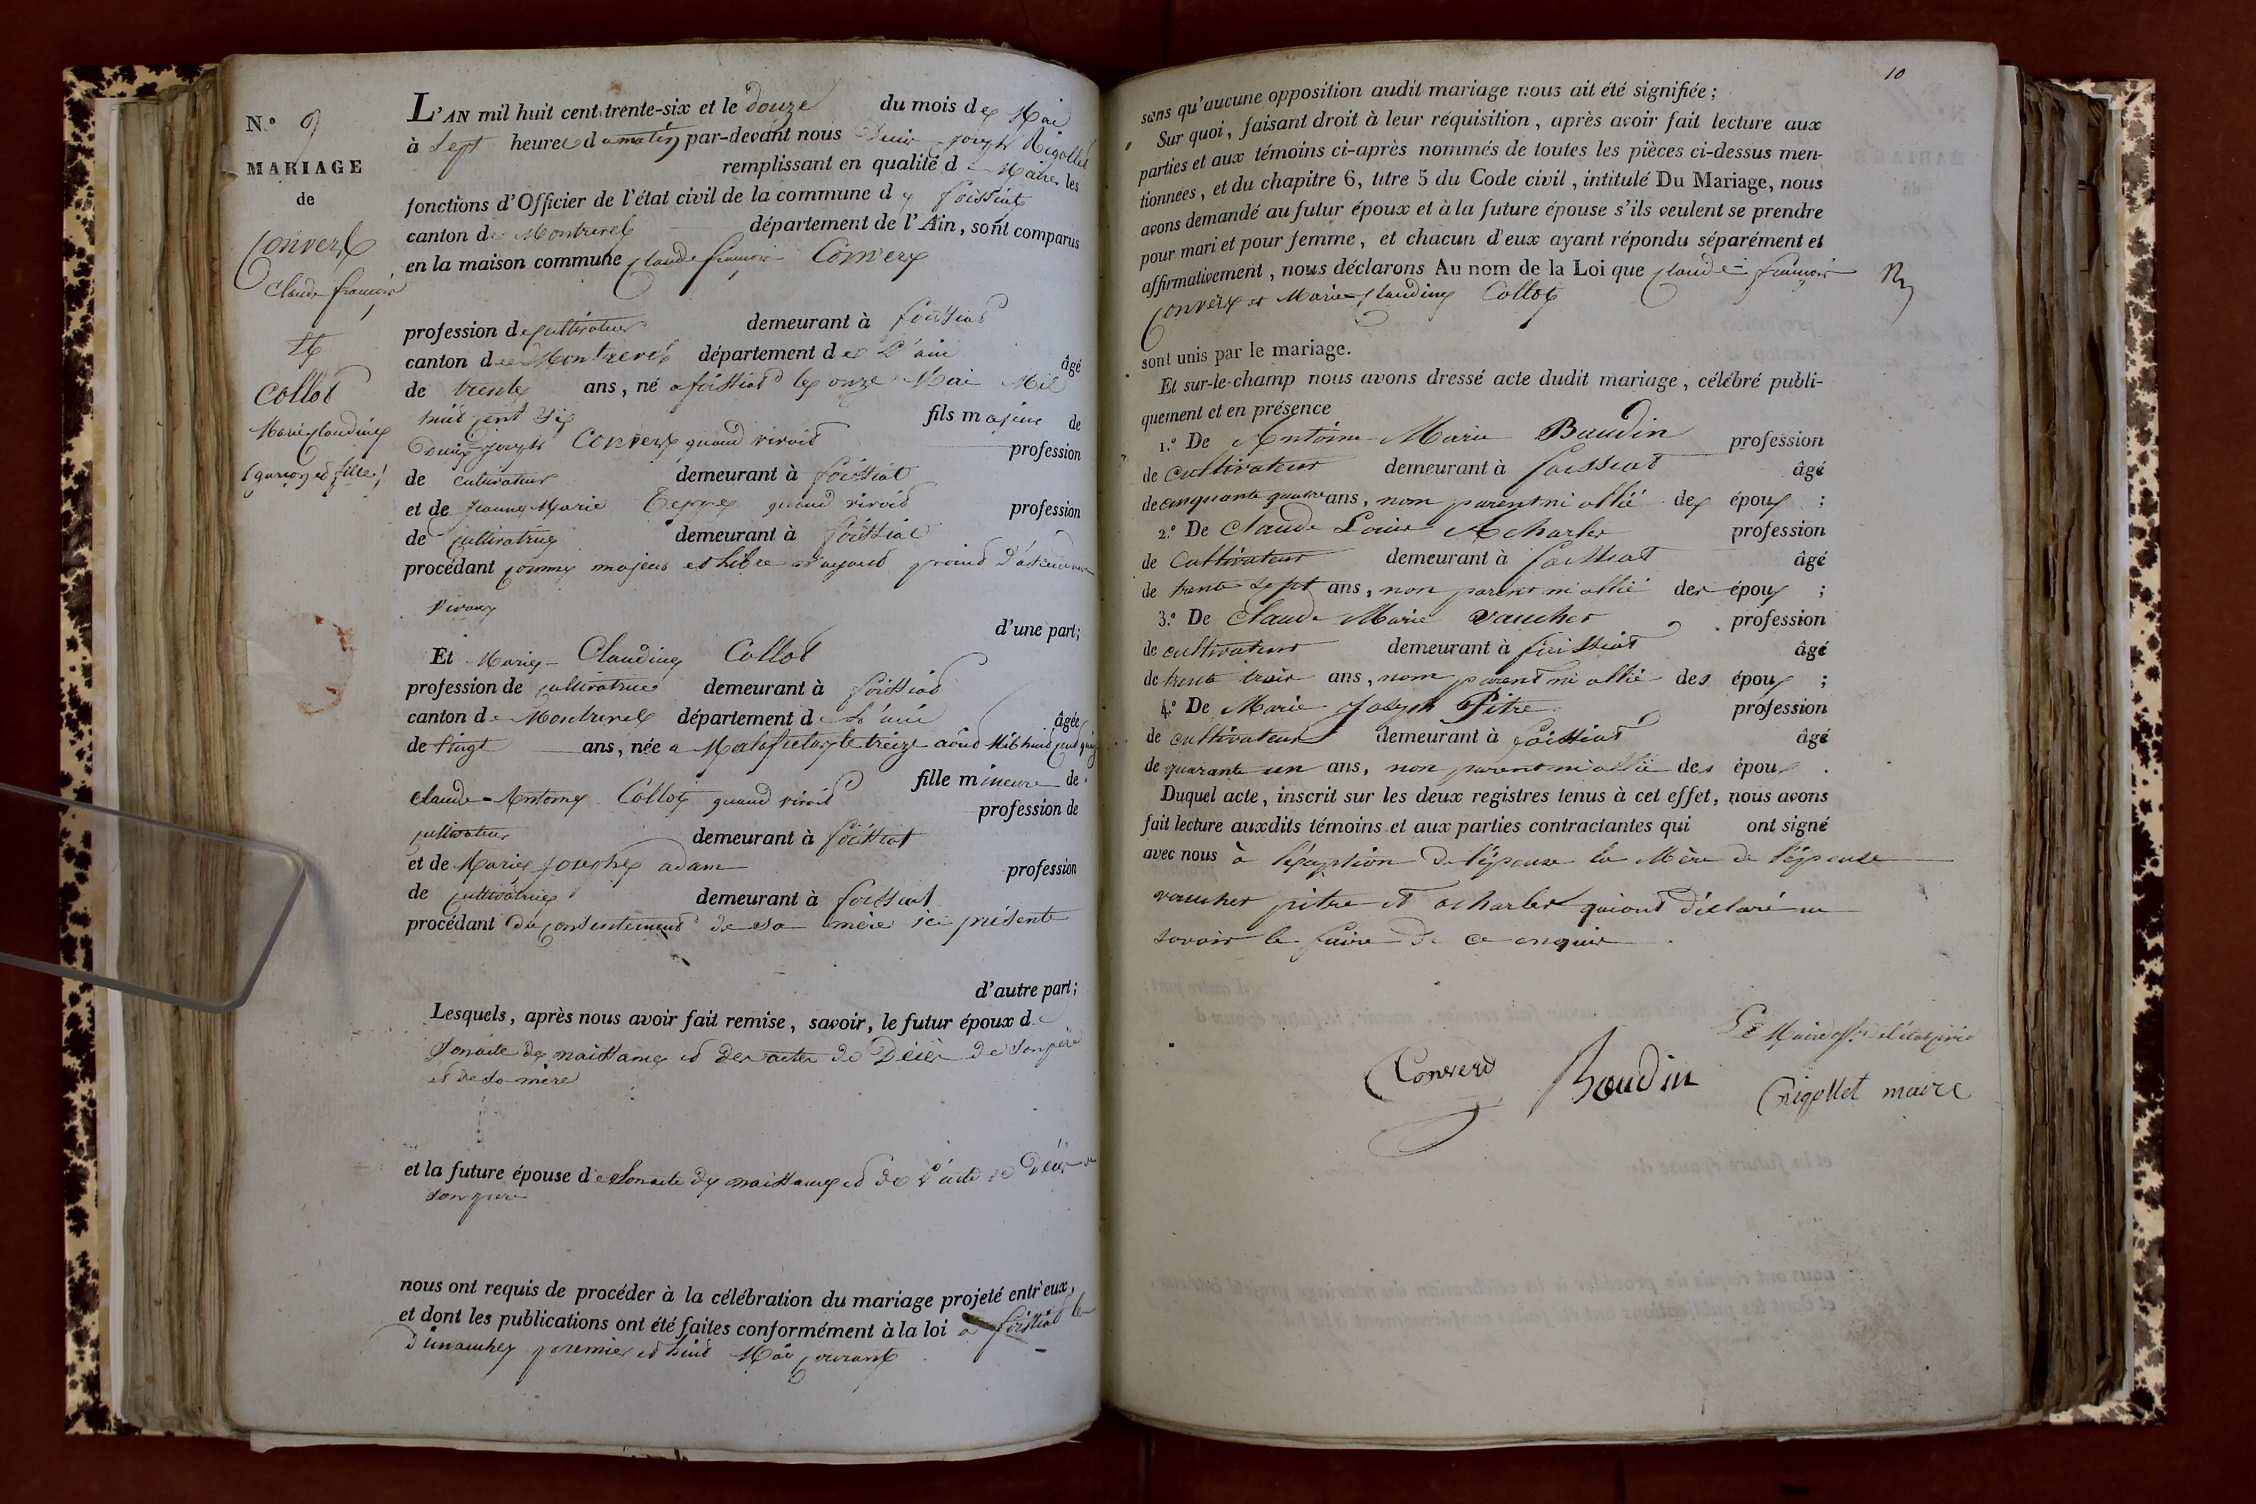 N.° 9
MARIAGE
de
Convert
Claude françois
et
Collot
Marie Claudine
(garçon et fille)
L'AN mil huit cent trente-six et le douze du mois de Mai
à sept heures du matin par-devant nous Denis joseph Rigollet
remplissant en qualité de Maire les
fonctions d'Officier de l'état civil de la commune de foissiat
canton de Montrevel département de l'Ain, sont comparus
en la maison commune Claude françois Convert
profession de cultivateur demeurant à foissiat
canton de Montrevel département de L'ain âgé
de trente ans, né a foissiat le onze Mai Mil
huit cent six fils majeur de
Denis joseph Convert quand vivoit profession
de cultivateur demeurant à foissiat
et de jeanne Marie quand vivoit profession
de cultivatrice demeurant à foissiat
procédant comme majeur et libre n'ayant point d'ascendans
vivans
d'une part;
Et Marie Claudine Collot
profession de cultivatrice demeurant à foissiat
canton de Montrevel département de L'ain âgée
de vingt ans, née a le treize août Mil huit cent quinze
fille mineure de
Claude-Antoine Collot quand vivoit profession de
cultivateur demeurant à foissiat
et de Marie josephe adam profession
de cultivatrice demeurant à foissiat
procédant du consentement de sa mère ici présente
d'autre part;
Lesquels, après nous avoir fait remise, savoir, le futur époux de
son acte de naissance et des actes de Décès de son père
et de sa mère
et la future épouse de son acte de naissance et de l'acte de Décès de
son père
nous ont requis de procéder à la célébration du mariage projeté entr'eux,
et dont les publications ont été faites conformément à la loi a foissiat les
dimanches premier et huit Mai courant
10
sans qu'aucune opposition audit mariage nous ait été signifiée;
Sur quoi, faisant droit à leur réquisition, après avoir fait lecture aux
parties et aux témoins ci-après nommés de toutes les pièces ci-dessus men-
tionnées, et du chapitre 6, titre 5 du Code civil, intitulé Du Mariage, nous
avons demandé au futur époux et à la future épouse s'ils veulent se prendre
pour mari et pour femme, et chacun d'eux ayant répondu séparément et
affirmativement, nous déclarons Au nom de la Loi que Claude françois
Convert et Marie Claudine Collot
sont unis par le mariage.
Et sur-le-champ nous avons dressé acte dudit mariage, célébré publi-
quement et en présence
1.° De Antoine Marie Baudin profession
de cultivateur demeurant à foissiat âgé
de cinquante quatre ans, nom parent ni allié des époux ;
2.° De Claude Louis Acharles profession
de Cultivateur demeurant à foissiat âgé
de trente sept ans, non parent ni allié des époux ;
3.° De Claude Marie vaucher profession
de cultivateur demeurant à foissiat âgé
de trente trois ans, nom parent ni allié des époux ;
4.° De Marie Joseph Pitre profession
de cultivateur demeurant à foissiat âgé
de quarante un ans, non parent ni allié des époux .
Duquel acte, inscrit sur les deux registres tenus à cet effet, nous avons
fait lecture auxdits témoins et aux parties contractantes qui ont signé
avec nous à l'exeption de l'épouse la Mère de l'épouse
vaucher pitre et acharles qui ont déclaré ne
savoir le faire de ce enquis.
Le Maire off. de l'état civil
Convert Baudin Rigollet maire